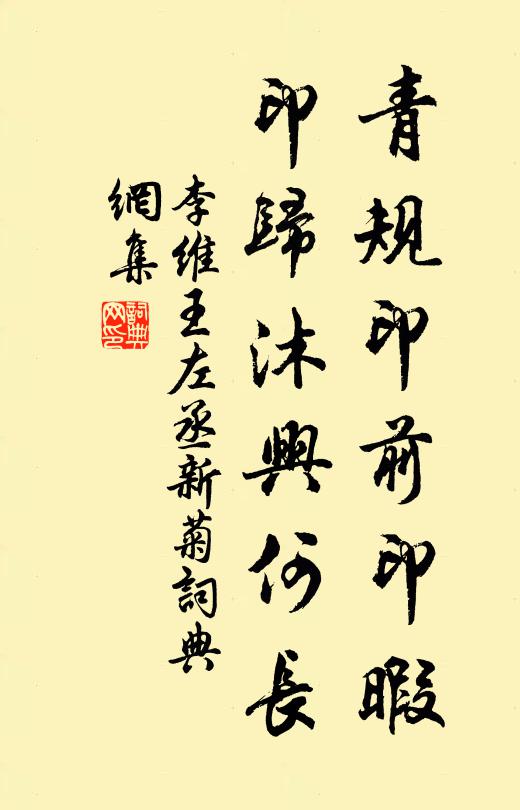 青規印前印暇
印歸沐興何長
李維王左丞新菊詞典
網集
詞典
网印